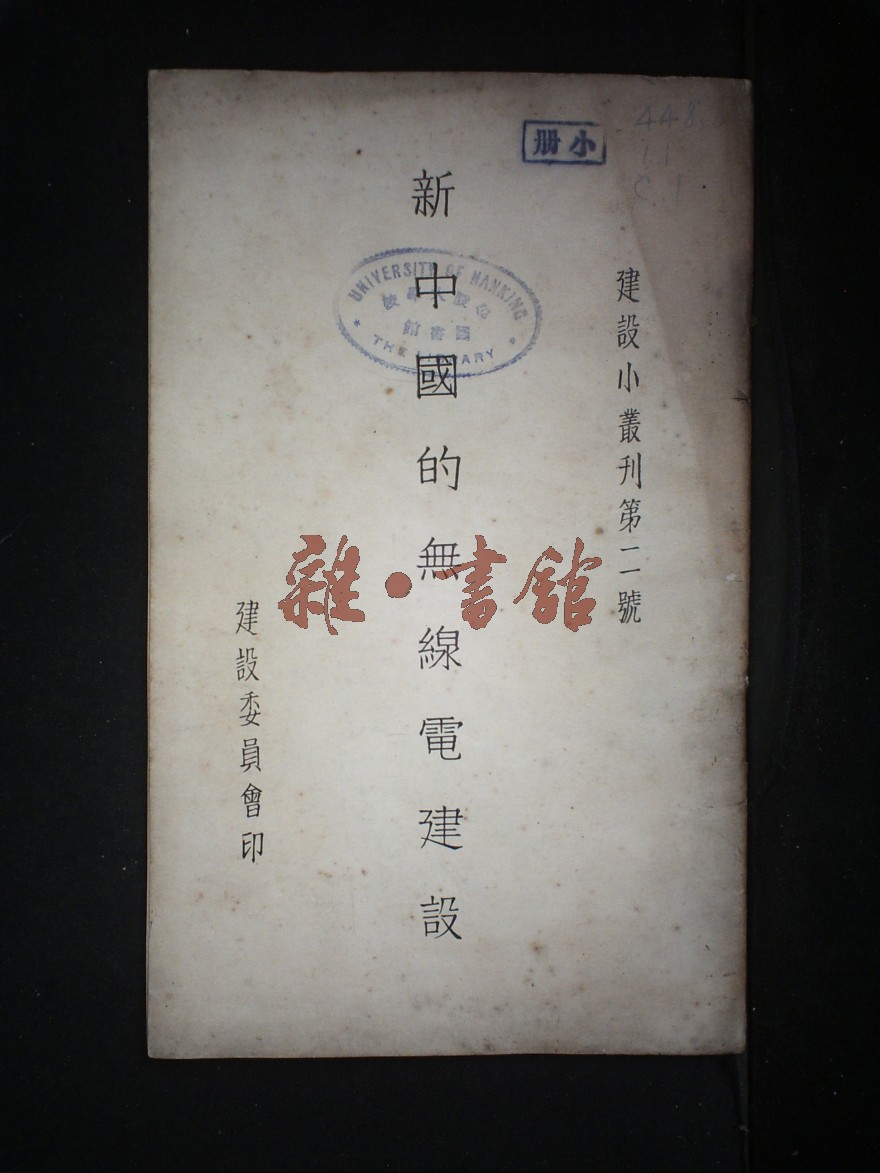 小册
C.1
建設小叢刊第二號
新中國的無線電建設
UNIVERSITY OF NANKING
金陵大學校
圖書館
THE LIBRARY
雜·書館
建設委員會印